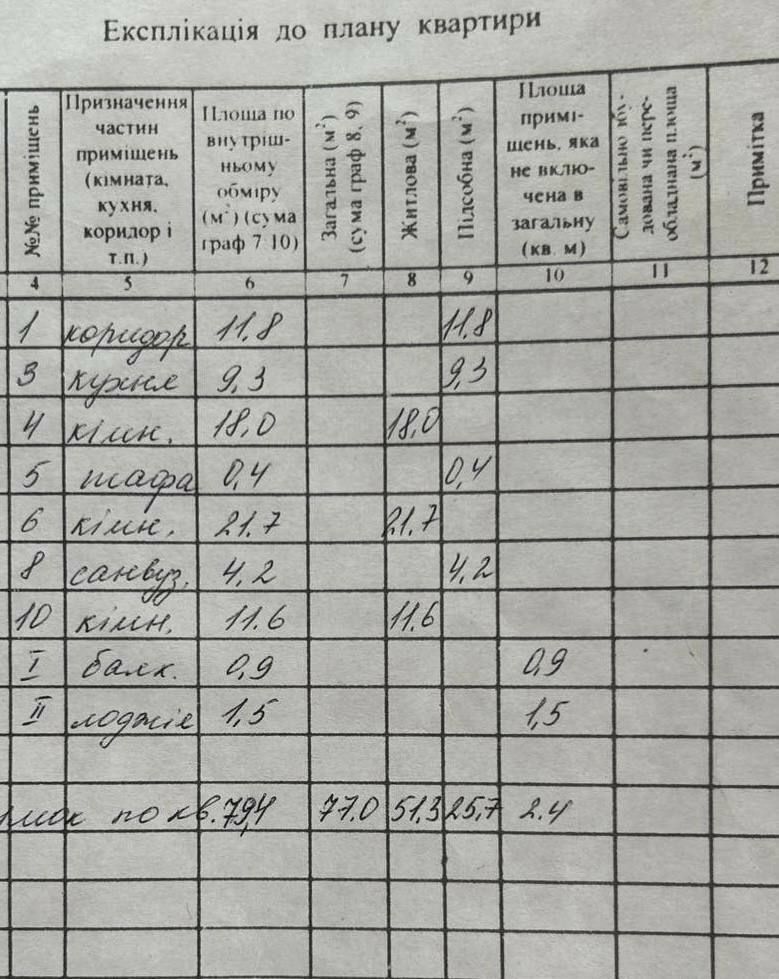 Експлікація до плану квартири
№№ приміщень
Призначення
частин
приміщень
(кімната,
кухня,
коридор і
т.п.)
Площа по
внутріш-
ньому
обміру
(м²) (сума
граф 7 10)
Загальна (м²)
(сума граф 8, 9)
Житлова (м²)
Підсобна (м²)
Площа
примі-
щень, яка
не вклю-
чена в
загальну
(кв. м)
Самовільно збу-
дована чи пере-
обладнана площа
(м²)
Примітка
4 5 6 7 8 9 10 11 12
1 коридор 11.8 11.8
3 кухня 9,3 9,3
4 кімн. 18,0 18,0
5 шафа 0,4 0,4
6 кімн. 21.7 21.7
8 санвуз. 4,2 4,2
10 кімн. 11.6 11.6
I балк. 0,9 0,9
II лоджія 1,5 1,5
по кв. 79,4 77.0 51.3 25,7 2.4